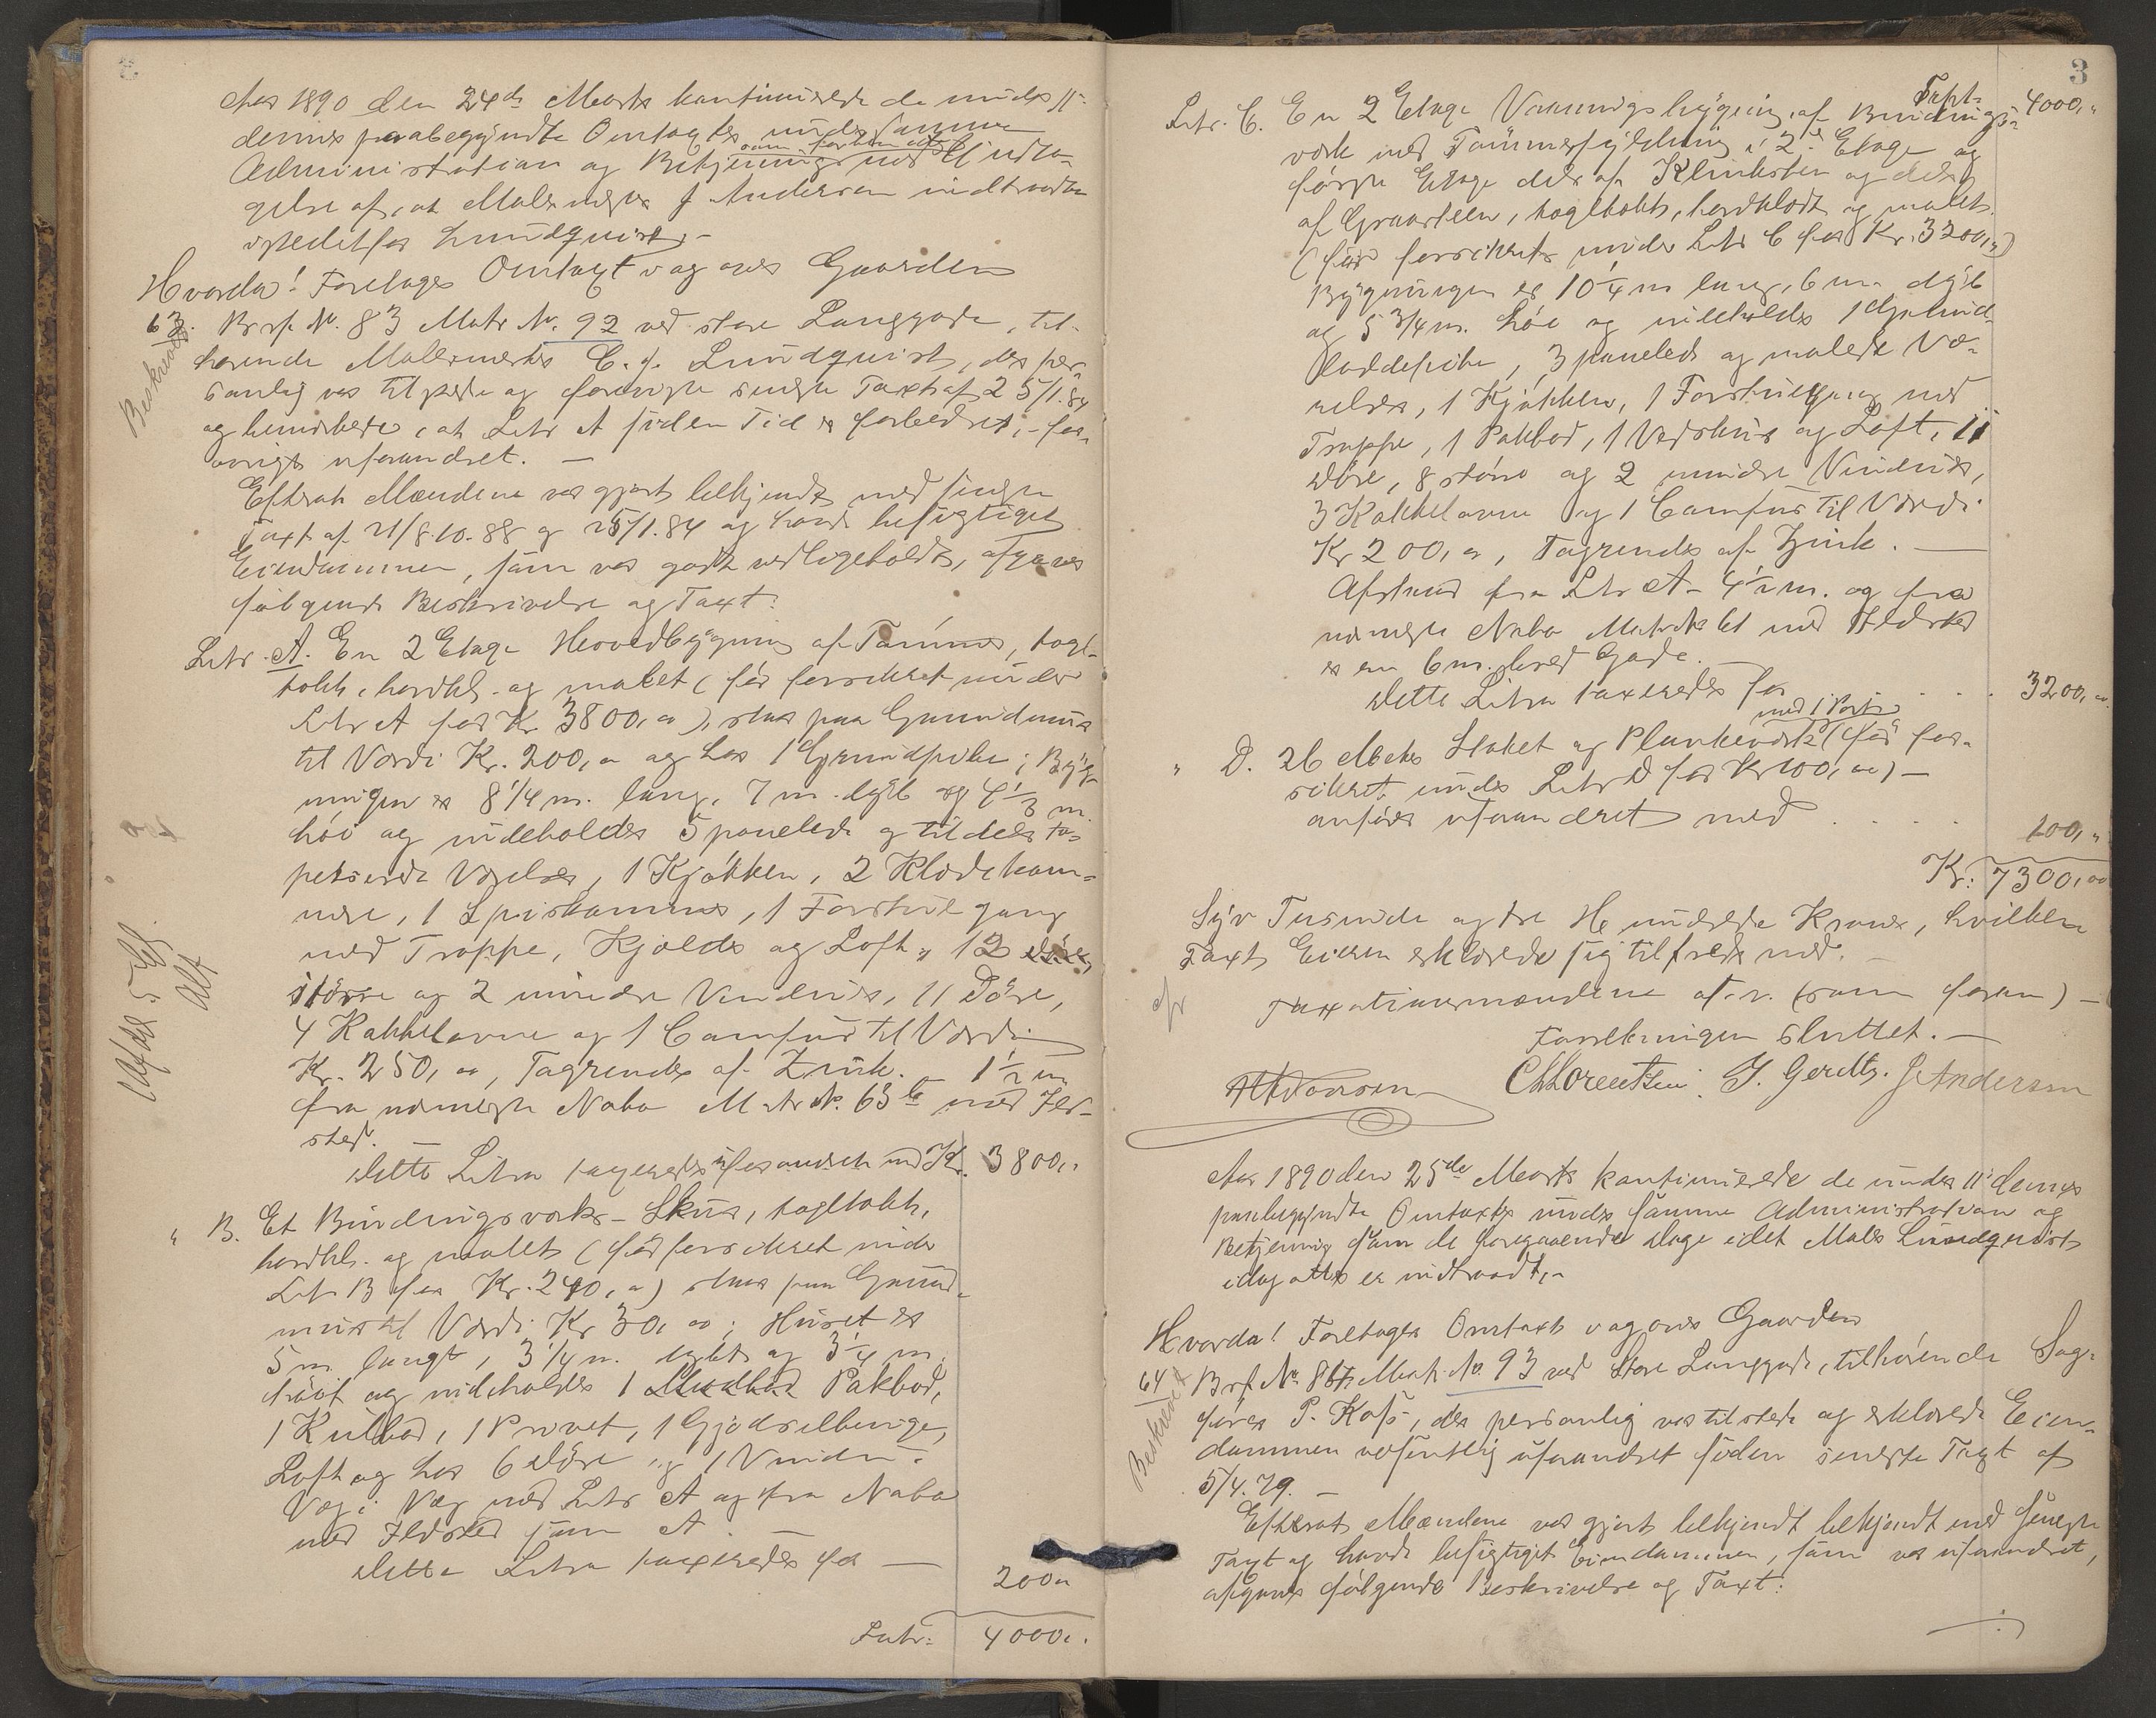 Aar 1890 den 24de Marts kontinuerede de under 11.
dennes paabegyndte Omtaxter under samme
Administration og Betjening som forhen med Undta-
gelse af, at Malermester J Andersen indtraadte
istedetfor Lundquist. -
Hvorda! Foretoges Omtaxt v og over Gaarden
63. Brf. No. 83 Matr No. 92 ved store Langgade, til-
Beskrevet
hørende Malermester C. J. Lundquist, der per-
sonlig var tilstede og foreviste seneste Taxt af 25/1. 84
og bemærkede, at Litr A siden Tid er forbedret, - for-
øvrigt uforandret. —
Efterat Mændene var gjort bekjendt med seneste
Taxt af 21/8.10.88 og 25/1.84 og havde besigtiget
Eiendommen, som var godt vedligeholdt, afgaves
følgende Beskrivelse og Taxt:
Litr. A. En 2 Etage Hovedbygning af Tømmer, tagl-
tækt, bordkl. og malet (før forsikret under
Litr A for Kr 3800,00), staar paa Grundmur
til Værdi Kr. 200,00 og har 1 Grundpibe; Byg-
ningen er 8 1/4 m. lang, 7 m. dyb og 4 1/3 m.
høi og indeholder 5 panelede og tildels ta-
petserede Værelser, 1 Kjøkken, 2 Klædekam-
mere, 1 Spiskammer, 1 Forstuegang
med Trappe, Kjelder og Loft, 12
større og 2 mindre Vinduer, 11 Døre,
4 Kakkelovne og 1 Comfur til Værdi
Kr. 250,00, Tagrender af Zink. - 1 1/2 m
fra nærmeste Nabo Matr No. 63 b med Ild-
sted. —
Dette Litra taxeredes uforandret med Kr. 3800,"
Vafda 5 Eg.
alt
" B. Et Bindingsværks-Skur, tagltækt,
bordkl. og malet (før forsikret under
Litr B for Kr. 240,00) staar paa Grund-
mur til Værdi Kr 30,00; Huset er
5 m. langt, 3 1/4 m. dybt og 3 1/4 m.
høit og indeholder 1 Pakbod,
1 Kulbod, 1 Privet, 1 Gjødselbinge,
Loft og har 6 Døre og 1 Vindu.
Væg i Væg med Litr A og fra Nabo
med Ildsted som A. —
Dette Litra taxeredes for —
200"
Latr: 4000,.
3
Trspt. 4000,"
Litr. C. En 2 Etage Vaaningsbygning, af Bindings-
værk med Tømmerfyldning i 2den Etage og
første Etage dels af Klinksten og dels
af Graasteen, tagltækt, bordklædt og malet.
(før forsikret under Litr C for Kr. 3200,00)
Bygningen er 10 1/4 m lang, 6 m. dyb
og 5 3/4 m. høi og indeholder 1 Grund-
loddepibe, 3 panelede og malede Væ-
relser, 1 Kjøkken, 1 Forstuegang med
Trappe, 1 Pakbod, 1 Vedskur og Loft, 11
Døre, 8 større og 2 mindre Vinduer,
3 Kakkelovne og 1 Comfur til Værdi
Kr 200,00, Tagrender af Zink. —
Afstand fra Litr A - 4 1/2 m. og fra
nærmeste Nabo Matr No 61 med Ildsted
er en 6 m. bred Gade. —
Dette Litra taxeredes for . . . 3200,00.
" D. 26 Meter Staket og Plankeværk med 1 Port (før for-
sikret under Litr D for Kr 100,00) —
anføres uforandret med . . . . 100,"
Kr: 7300,00
Syv Tusinde og tre Hundrede Kroner, hvilken
Taxt Eieren erklærede sig tilfreds med. —
Taxationsmændene afr. (som foran) —
Forretningen sluttet. —
C Lorentzen. J. Gerdtz. J Andersen
Aar 1890 den 25de Marts kontinuerede de under 11 dennes
paabegyndte Omtaxter under samme Administration og
Betjening som de foregaaende Dage idet Maler Lundquist
idag atter er indtraadt. -
Hvorda! Foretoges Omtaxt v og over Gaarden
64 Brf No. 84 Matr. No. 93 ved Store Langgade, tilhørende Sag-
Beskrevet
fører P. Kofs, der personlig var tilstede og erklærede Eien-
dommen væsentlig uforandret siden seneste Taxt af
5/4.79. —
Efterat Mændene var gjort bekjendt bekjendt med seneste
Taxt og havde besigtiget Eiendommen, som var uforandret,
afgaves følgende Beskrivelse og Taxt: